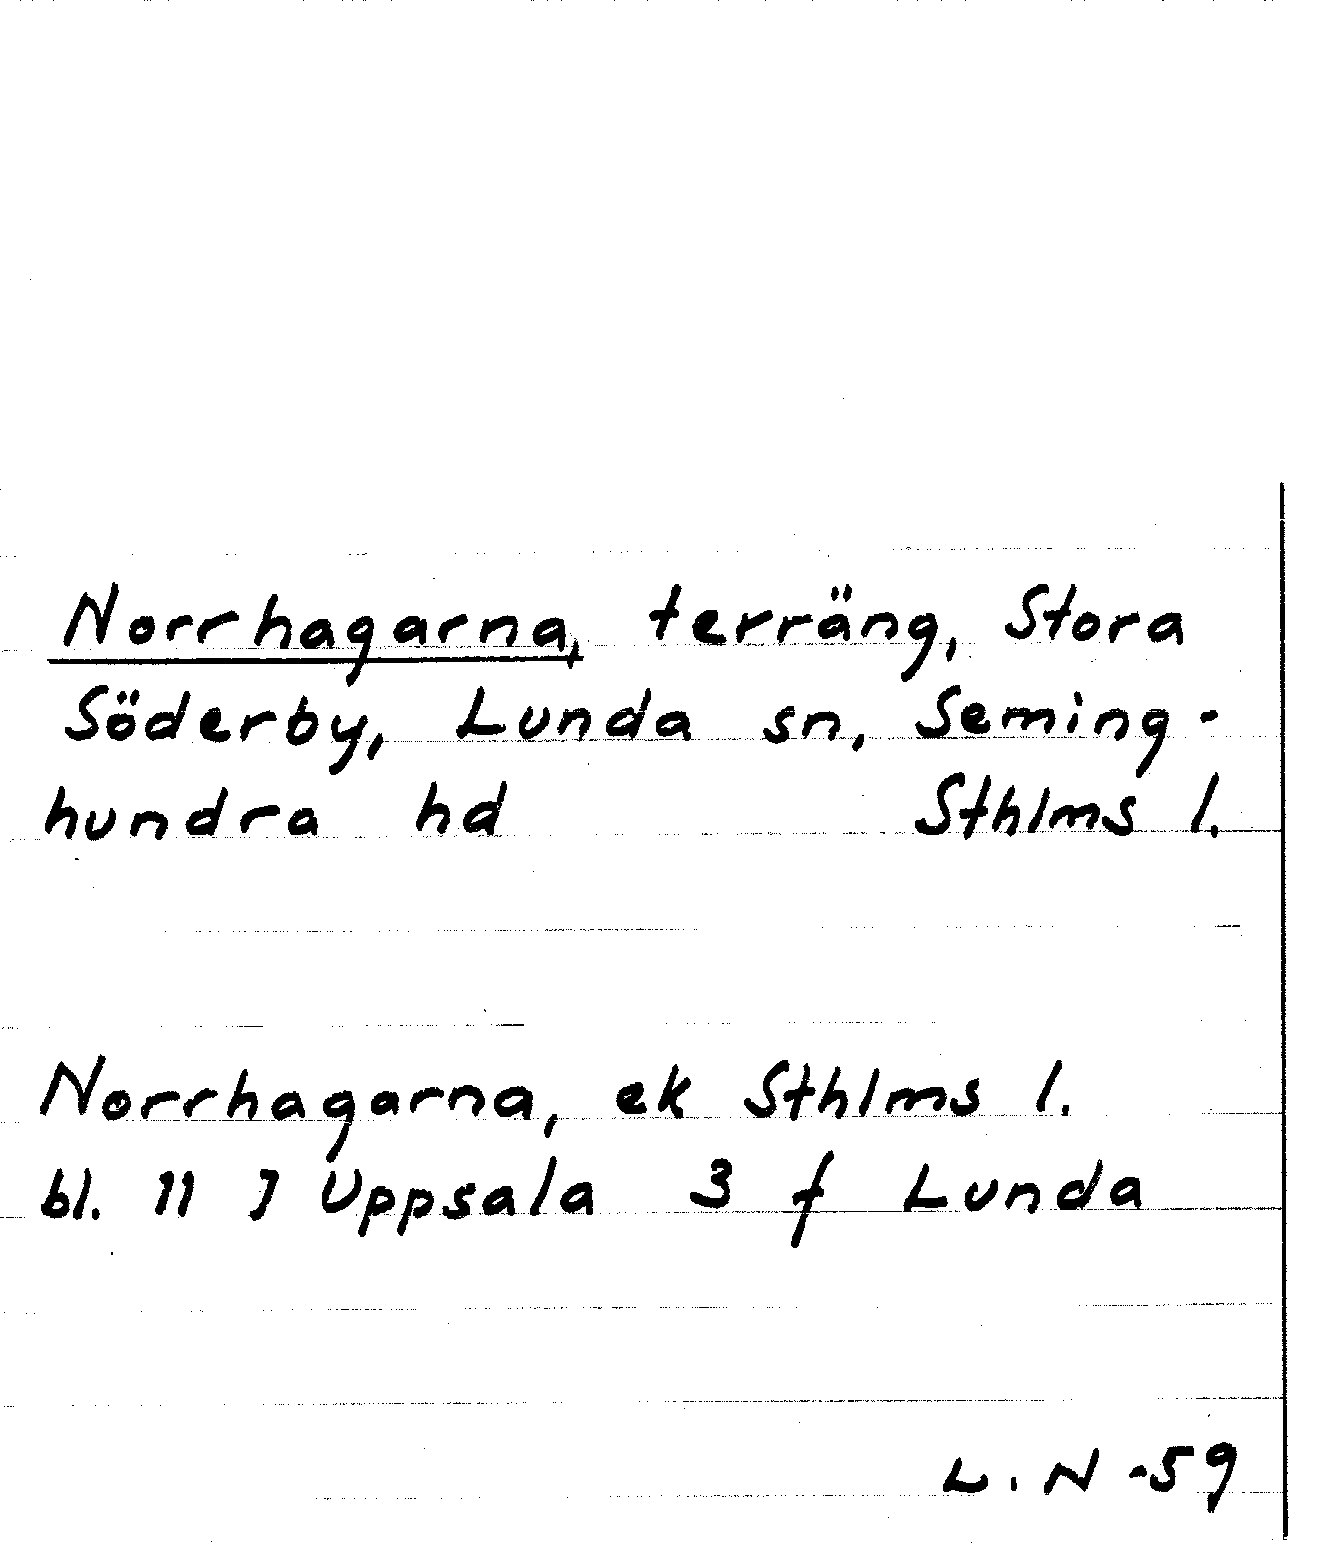 Norrhagarna, terräng, Stora
Söderby, Lunda sn, Seming-
hundra hd Sthlms l.
Norrhagarna, ek Sthlms l.
bl. 11 J Uppsala 3 f Lunda
L. N -59